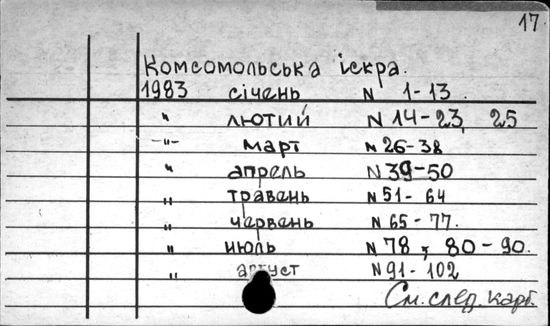 17.
Комсомольська іскра.
1983 січень N 1-13
" лютий N 14-23, 25
-"- март N 26-38
" апрель N 39-50
" травень N 51-64
" червень N 65-77.
" июль N 78, 80-90.
" август N 91-102
См. след. карт.